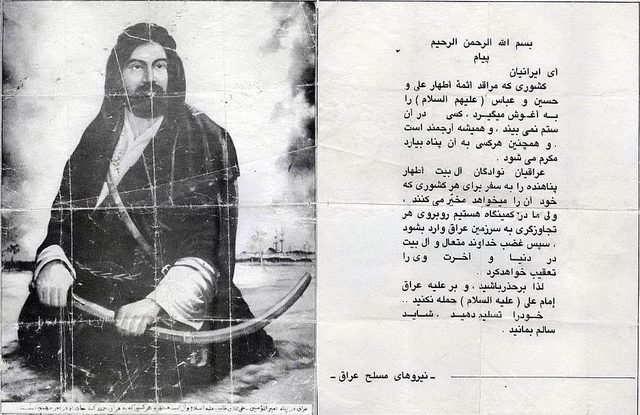 بسم الله الرحمن الرحیم
پیام
ای ایرانیان
کشوری که مراقد ائمهٔ اطهار علی و
حسین و عباس (علیهم السلام) را
به آغوش میگیرد، کسی در آن
ستم نمی بیند، و همیشه ارجمند است
. و همچنین هرکسی به آن پناه بیارد
مکرم می شود.
عراقیان نوادگان آل بیت اطهار
پناهنده را به سفر برای هر کشوری که
خود آن را میخواهد مخیّر می کنند،
ولی ما در کمینگاه هستیم روبروی هر
تجاوزگری به سرزمین عراق وارد بشود
، سپس غضب خداوند متعال و آل بیت
در دنیا و آخرت وی را
تعقیب خواهدکرد.
لذا برحذرباشید، و بر علیه عراق
امام علی (علیه السلام) حمله نکنید..
خودرا تسلیم دهید، شاید
سالم بمانید.
ـ نیروهای مسلح عراق ـ